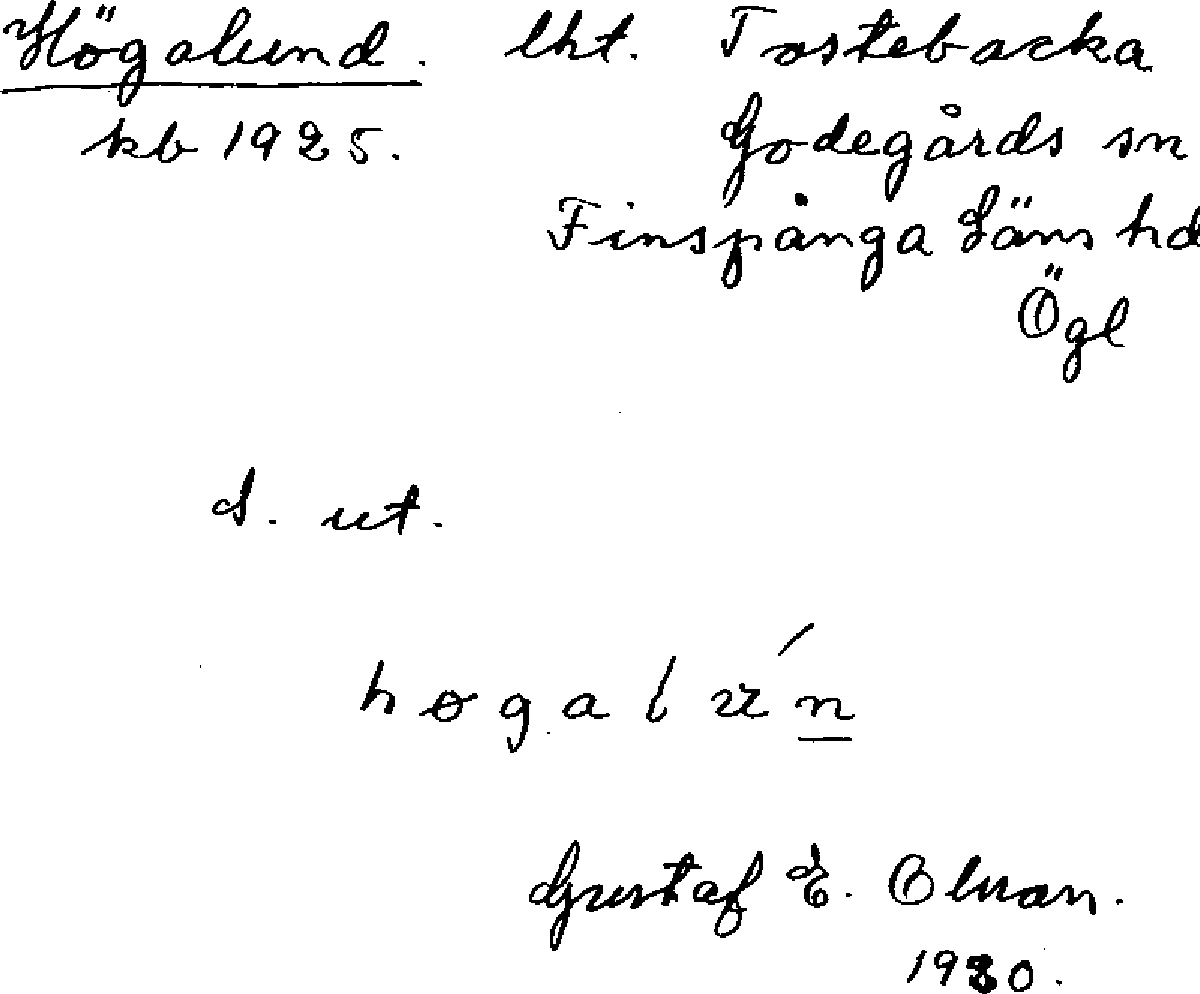 Högalund. lht. Tostebacka
kb 1925. Godegårds sn
Finspånga Läns hd
Ögl
d. ut.
Gustaf E.
1930.